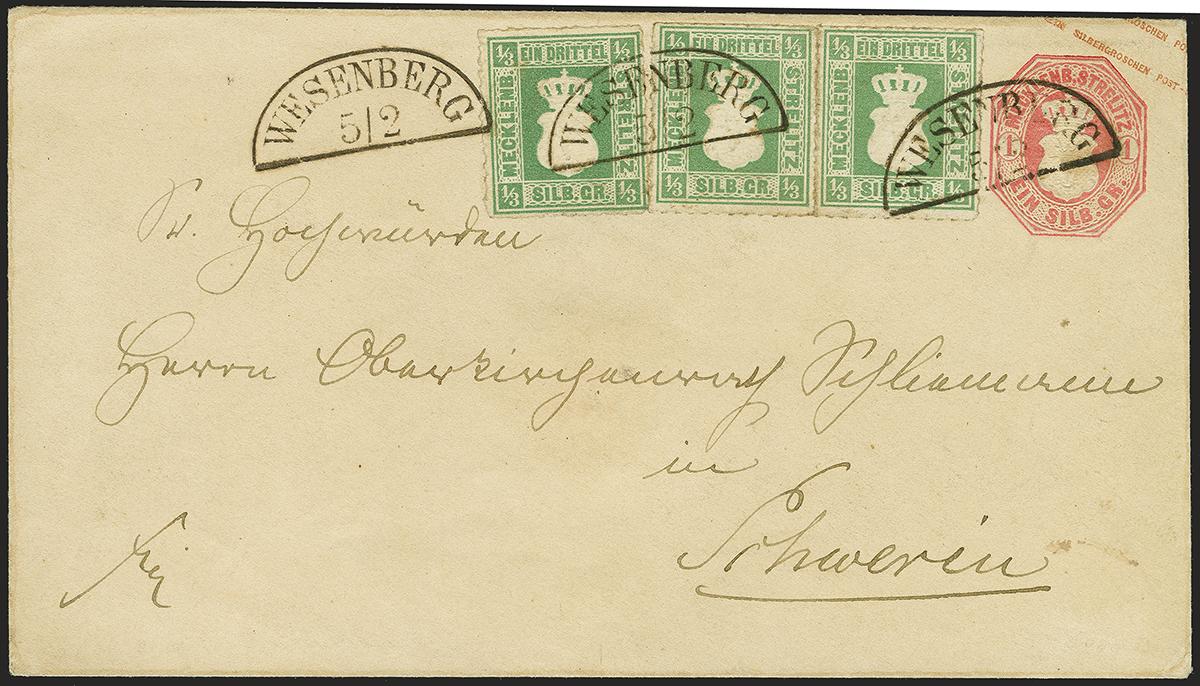 SILBERGROSCHEN POST-
WESENBERG
5/2
1/3 EIN DRITTEL 1/3
MECKLENB. STRELITZ
1/3 SILB. GR. 1/3
WESENBERG
5/2
1/3 EIN DRITTEL 1/3
MECKLENB. STRELITZ
1/3 SILB. GR. 1/3
1/3 EIN DRITTEL 1/3
MECKLENB. STRELITZ
1/3 SILB. GR. 1/3
WESENBERG
5/2
MECKLENB. STRELITZ
1 1
EIN SILB. GR.
Sr. Hochwürden
Herrn Oberkirchenrath Schliemann
in
Schwerin